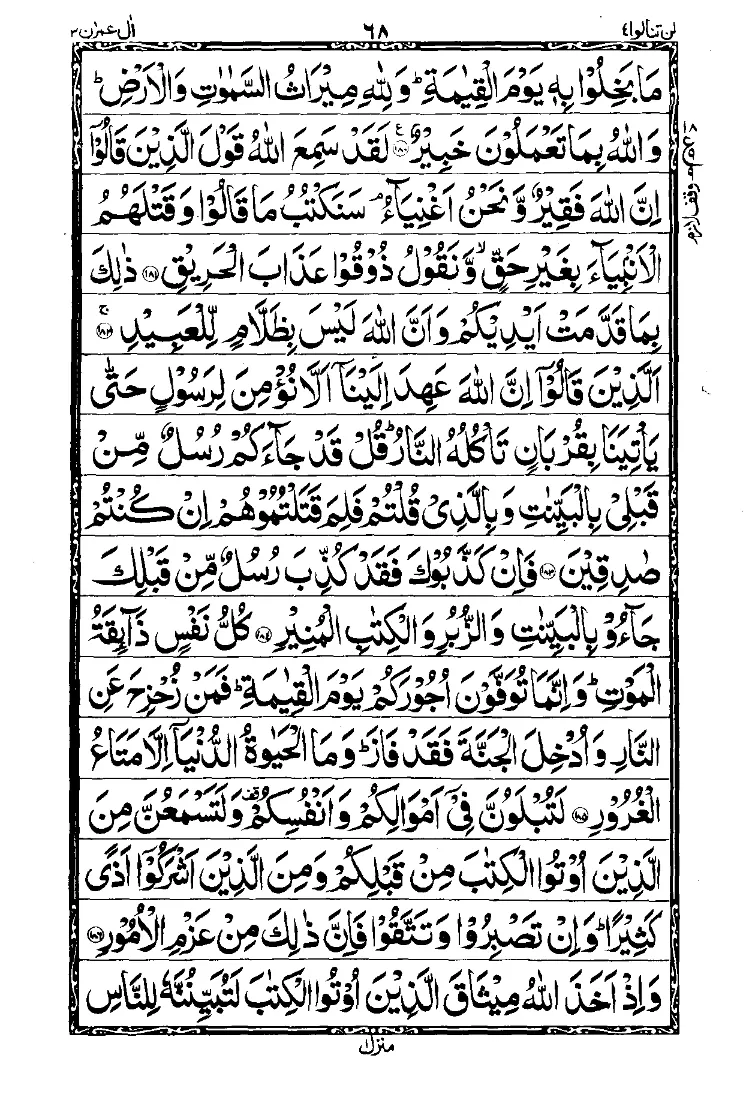 لن تنالوا۴ ۶۸ اٰل عمرٰن۳
مَا بَخِلُوْا بِهٖ يَوْمَ الْقِيٰمَةِ ؕ وَلِلّٰهِ مِيْرَاثُ السَّمٰوٰتِ وَالْاَرْضِ ؕ
وَاللّٰهُ بِمَا تَعْمَلُوْنَ خَبِيْرٌ ﴿۱۸۰﴾ لَقَدْ سَمِعَ اللّٰهُ قَوْلَ الَّذِيْنَ قَالُوْۤا
اِنَّ اللّٰهَ فَقِيْرٌ وَّنَحْنُ اَغْنِيَآءُ ۘ سَنَكْتُبُ مَا قَالُوْا وَقَتْلَهُمُ
الْاَنْۢبِيَآءَ بِغَيْرِ حَقٍّ ۙ وَّنَقُوْلُ ذُوْقُوْا عَذَابَ الْحَرِيْقِ ﴿۱۸۱﴾ ذٰلِكَ
بِمَا قَدَّمَتْ اَيْدِيْكُمْ وَاَنَّ اللّٰهَ لَيْسَ بِظَلَّامٍ لِّلْعَبِيْدِ ۚ ﴿۱۸۲﴾
اَلَّذِيْنَ قَالُوْۤا اِنَّ اللّٰهَ عَهِدَ اِلَيْنَاۤ اَلَّا نُؤْمِنَ لِرَسُوْلٍ حَتّٰى
يَاْتِيَنَا بِقُرْبَانٍ تَاْكُلُهُ النَّارُ ؕ قُلْ قَدْ جَآءَكُمْ رُسُلٌ مِّنْ
قَبْلِىْ بِالْبَيِّنٰتِ وَبِالَّذِىْ قُلْتُمْ فَلِمَ قَتَلْتُمُوْهُمْ اِنْ كُنْتُمْ
صٰدِقِيْنَ ﴿۱۸۳﴾ فَاِنْ كَذَّبُوْكَ فَقَدْ كُذِّبَ رُسُلٌ مِّنْ قَبْلِكَ
جَآءُوْ بِالْبَيِّنٰتِ وَالزُّبُرِ وَالْكِتٰبِ الْمُنِيْرِ ﴿۱۸۴﴾ كُلُّ نَفْسٍ ذَآئِقَةُ
الْمَوْتِ ؕ وَاِنَّمَا تُوَفَّوْنَ اُجُوْرَكُمْ يَوْمَ الْقِيٰمَةِ ؕ فَمَنْ زُحْزِحَ عَنِ
النَّارِ وَاُدْخِلَ الْجَنَّةَ فَقَدْ فَازَ ؕ وَمَا الْحَيٰوةُ الدُّنْيَاۤ اِلَّا مَتَاعُ
الْغُرُوْرِ ﴿۱۸۵﴾ لَتُبْلَوُنَّ فِىْۤ اَمْوَالِكُمْ وَاَنْفُسِكُمْ ۫ وَلَتَسْمَعُنَّ مِنَ
الَّذِيْنَ اُوْتُوا الْكِتٰبَ مِنْ قَبْلِكُمْ وَمِنَ الَّذِيْنَ اَشْرَكُوْۤا اَذًى
كَثِيْرًا ؕ وَاِنْ تَصْبِرُوْا وَتَتَّقُوْا فَاِنَّ ذٰلِكَ مِنْ عَزْمِ الْاُمُوْرِ ﴿۱۸۶﴾
وَاِذْ اَخَذَ اللّٰهُ مِيْثَاقَ الَّذِيْنَ اُوْتُوا الْكِتٰبَ لَتُبَيِّنُنَّهٗ لِلنَّاسِ
منزل۱
وقف لازم